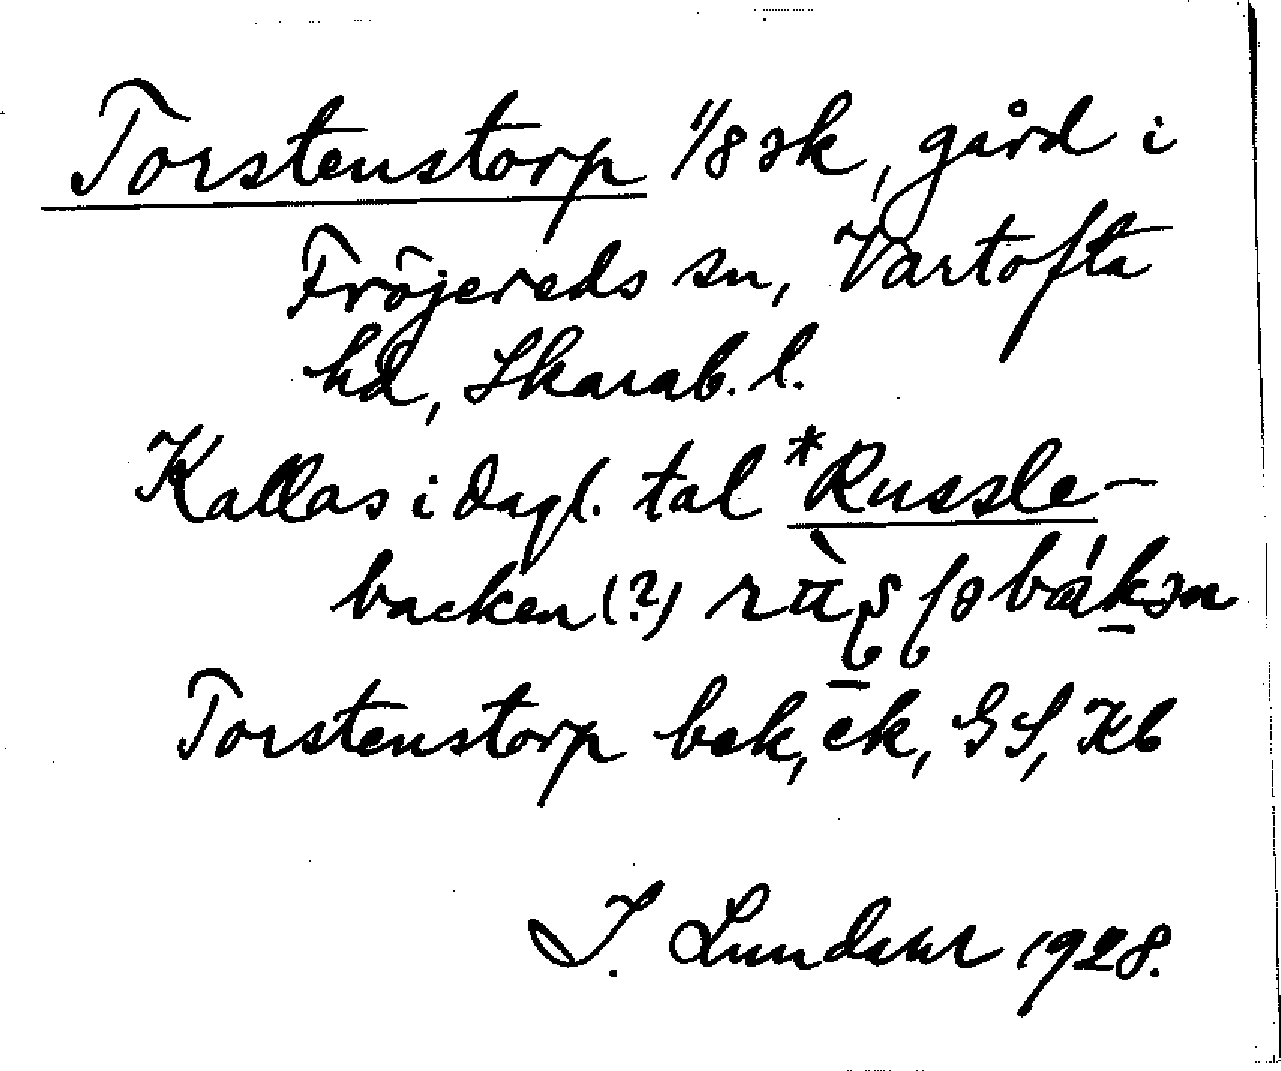 Torstenstorp 1/8 sk, gård i
Fröjereds sn, Vartofta
hd, Skarab. l.
Kallas i dagl. tal *Russle-
backen (?)
Torstenstorp bek, ek, GS, Kb
I. Lundahl 1928.